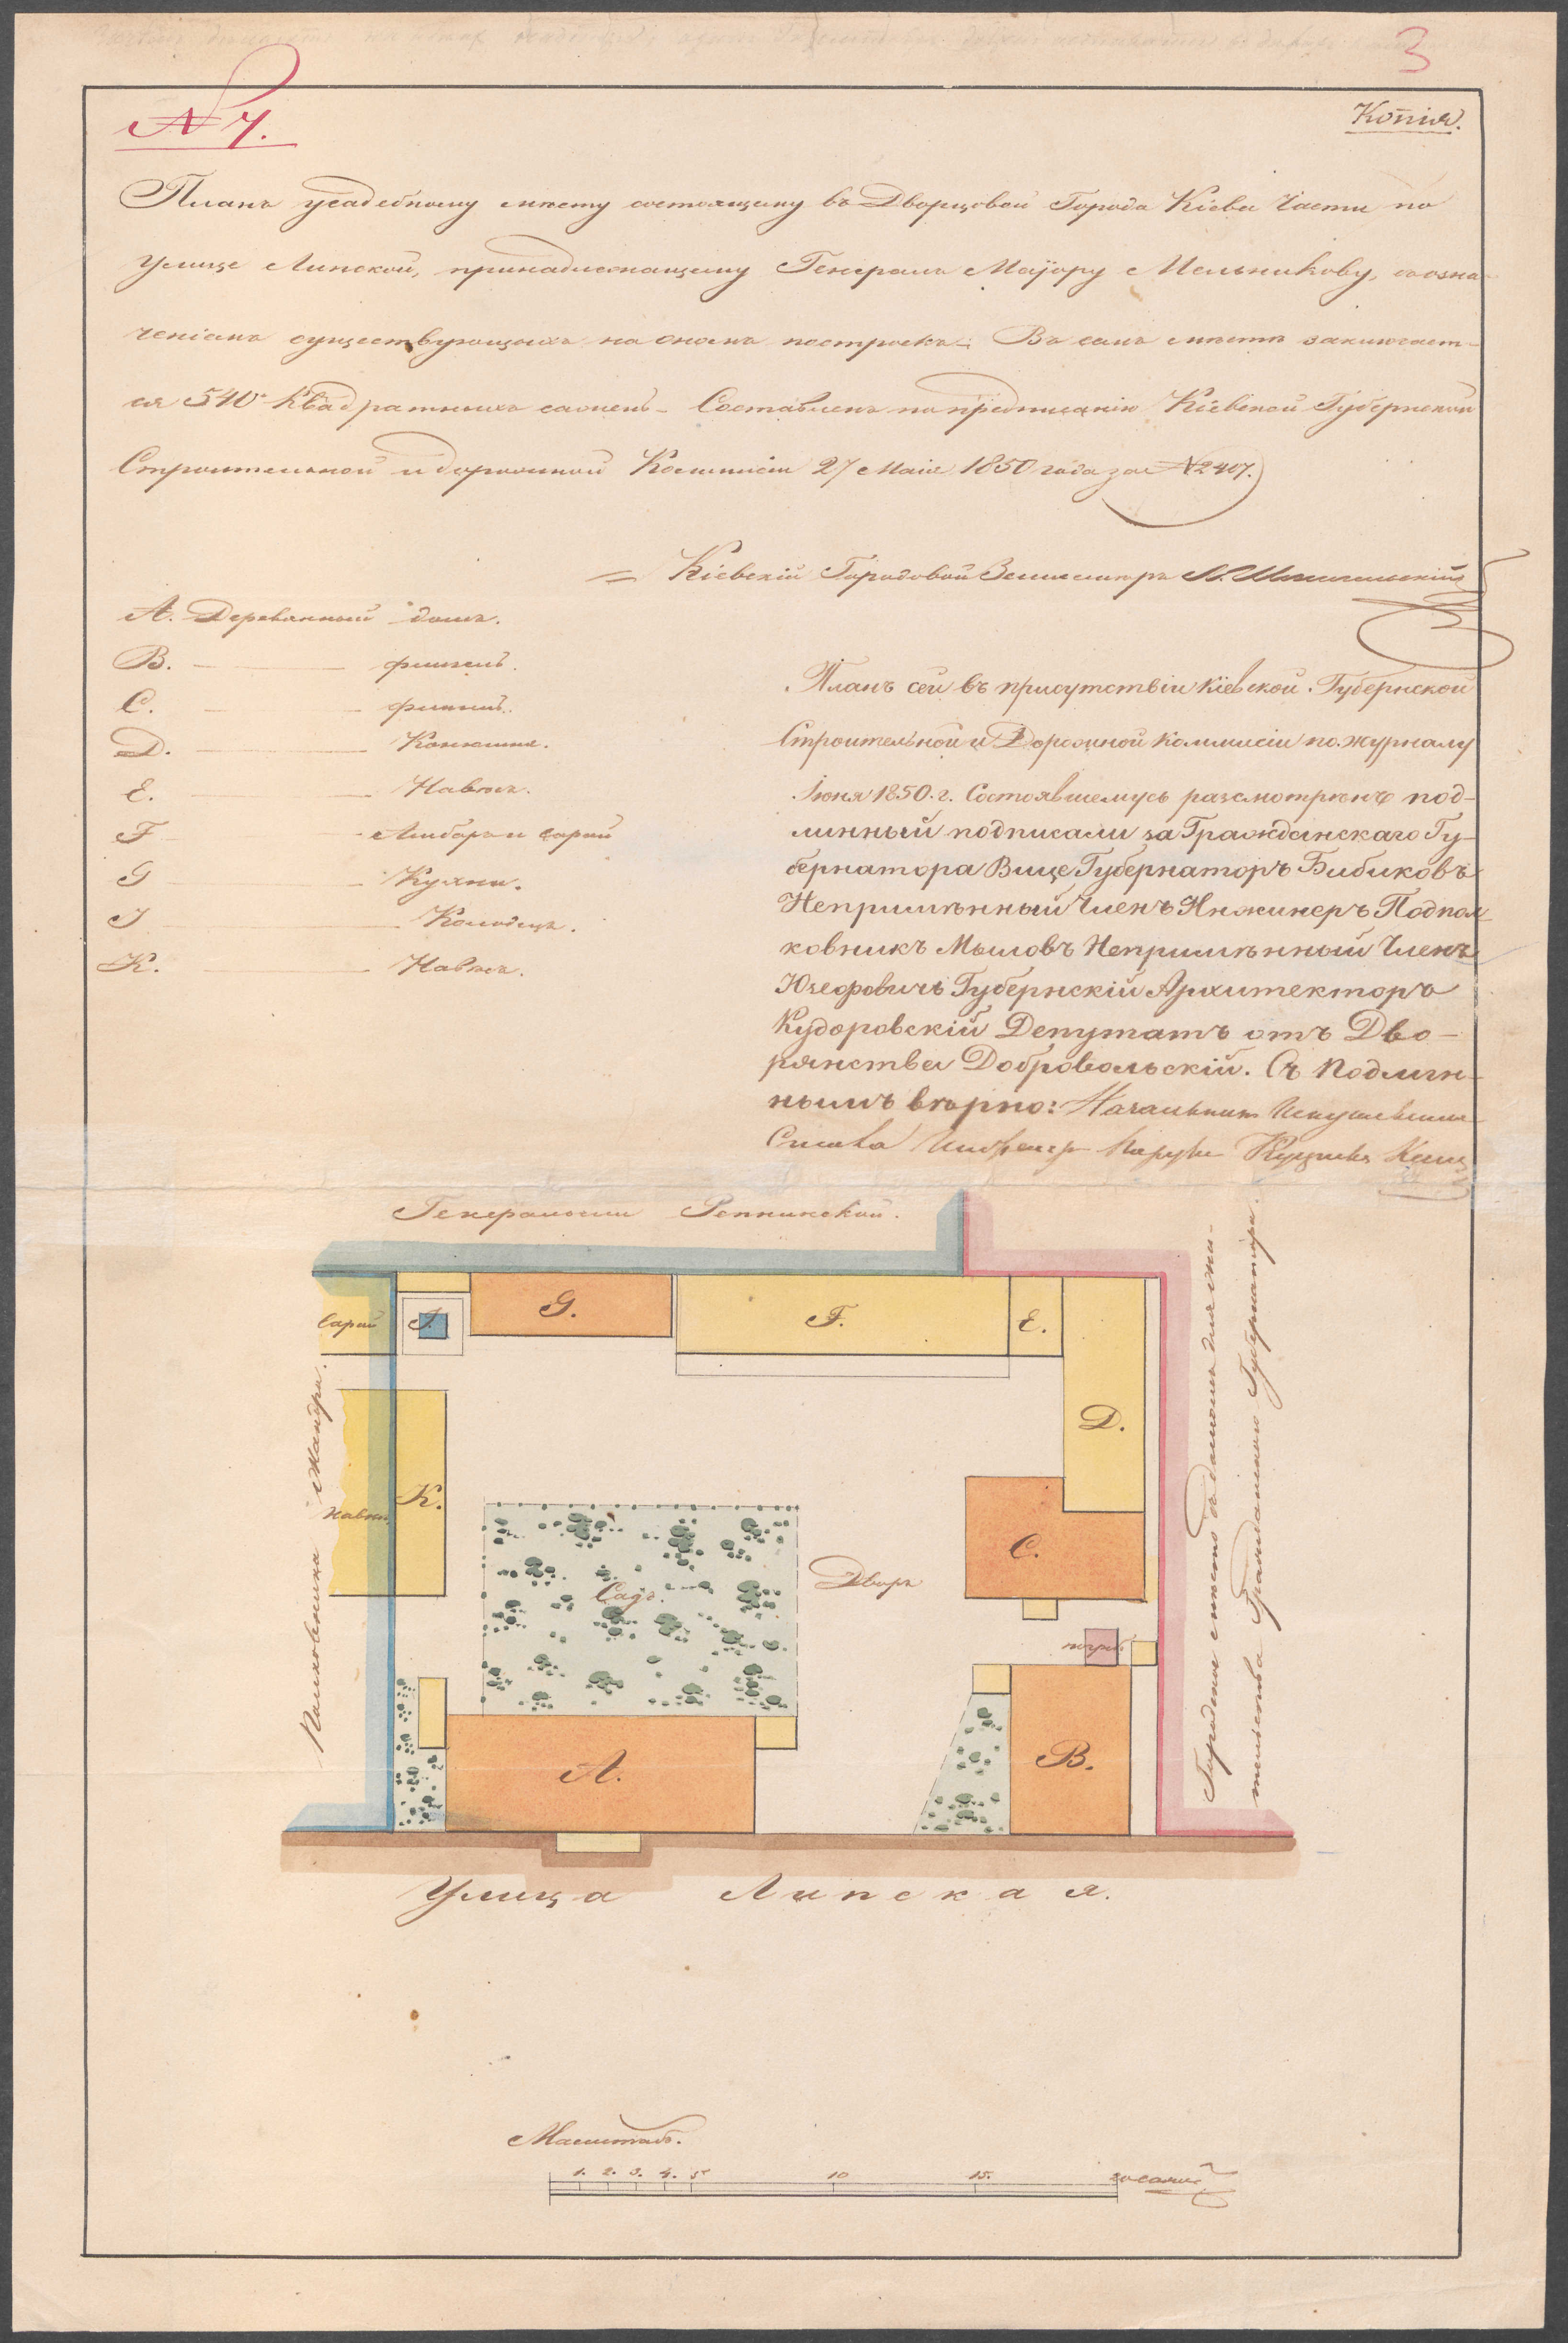 3
№ 7.
Копія.
Планъ усадебному мѣсту состоящему въ Дворцовой Города Кіева Части по
улице Липской, принадлежащему Генералъ Маіору Мельникову, съ озна-
ченіемъ существующихъ на ономъ построекъ. Въ семъ мѣстѣ заключает-
ся 540 квадратныхъ саженъ. Составленъ по предписанію Кіевской Губернской
Строительной и дорожной Коммисіи 27 Маія 1850 года за № 2407.
Кіевскій Городовой Землемѣръ
А. Деревянный домъ.
В. флигель.
С. флигель.
D. Конюшня.
E. Навѣсъ.
F Амбаръ и сарай
G Кухня.
J Колодецъ.
K. Навѣсъ.
Планъ сей въ присутствіи Кіевской Губернской
Строительной и Дорожной Коммисіи по журналу
Іюня 1850 г. Состоявшемусь разсмотрѣнъ под-
линный подписали за Гражданскаго Гу-
бернатора Вице Губернаторъ Бибиковъ
Непримѣнный Членъ Инжинеръ Подпол
ковникъ Мыловъ Непримѣнный Членъ
Юзефовичъ Губернскій Архитекторъ
Кудоровскій Депутатъ отъ Дво-
рянства Добровольскій. Съ подлин-
нымъ вѣрно: Начальникъ
Генеральши Репнинской.
Сарай
J.
G.
F.
E.
D.
K.
навѣсъ
C.
Садъ.
Дворъ
погребъ
A.
B.
Полковника
Городское мѣсто съ домомъ для жи-
тельства Гражданскаго Губернатора.
Улица Липская.
Масштабъ.
1. 2. 3. 4. 5 10 15. 20 саж.